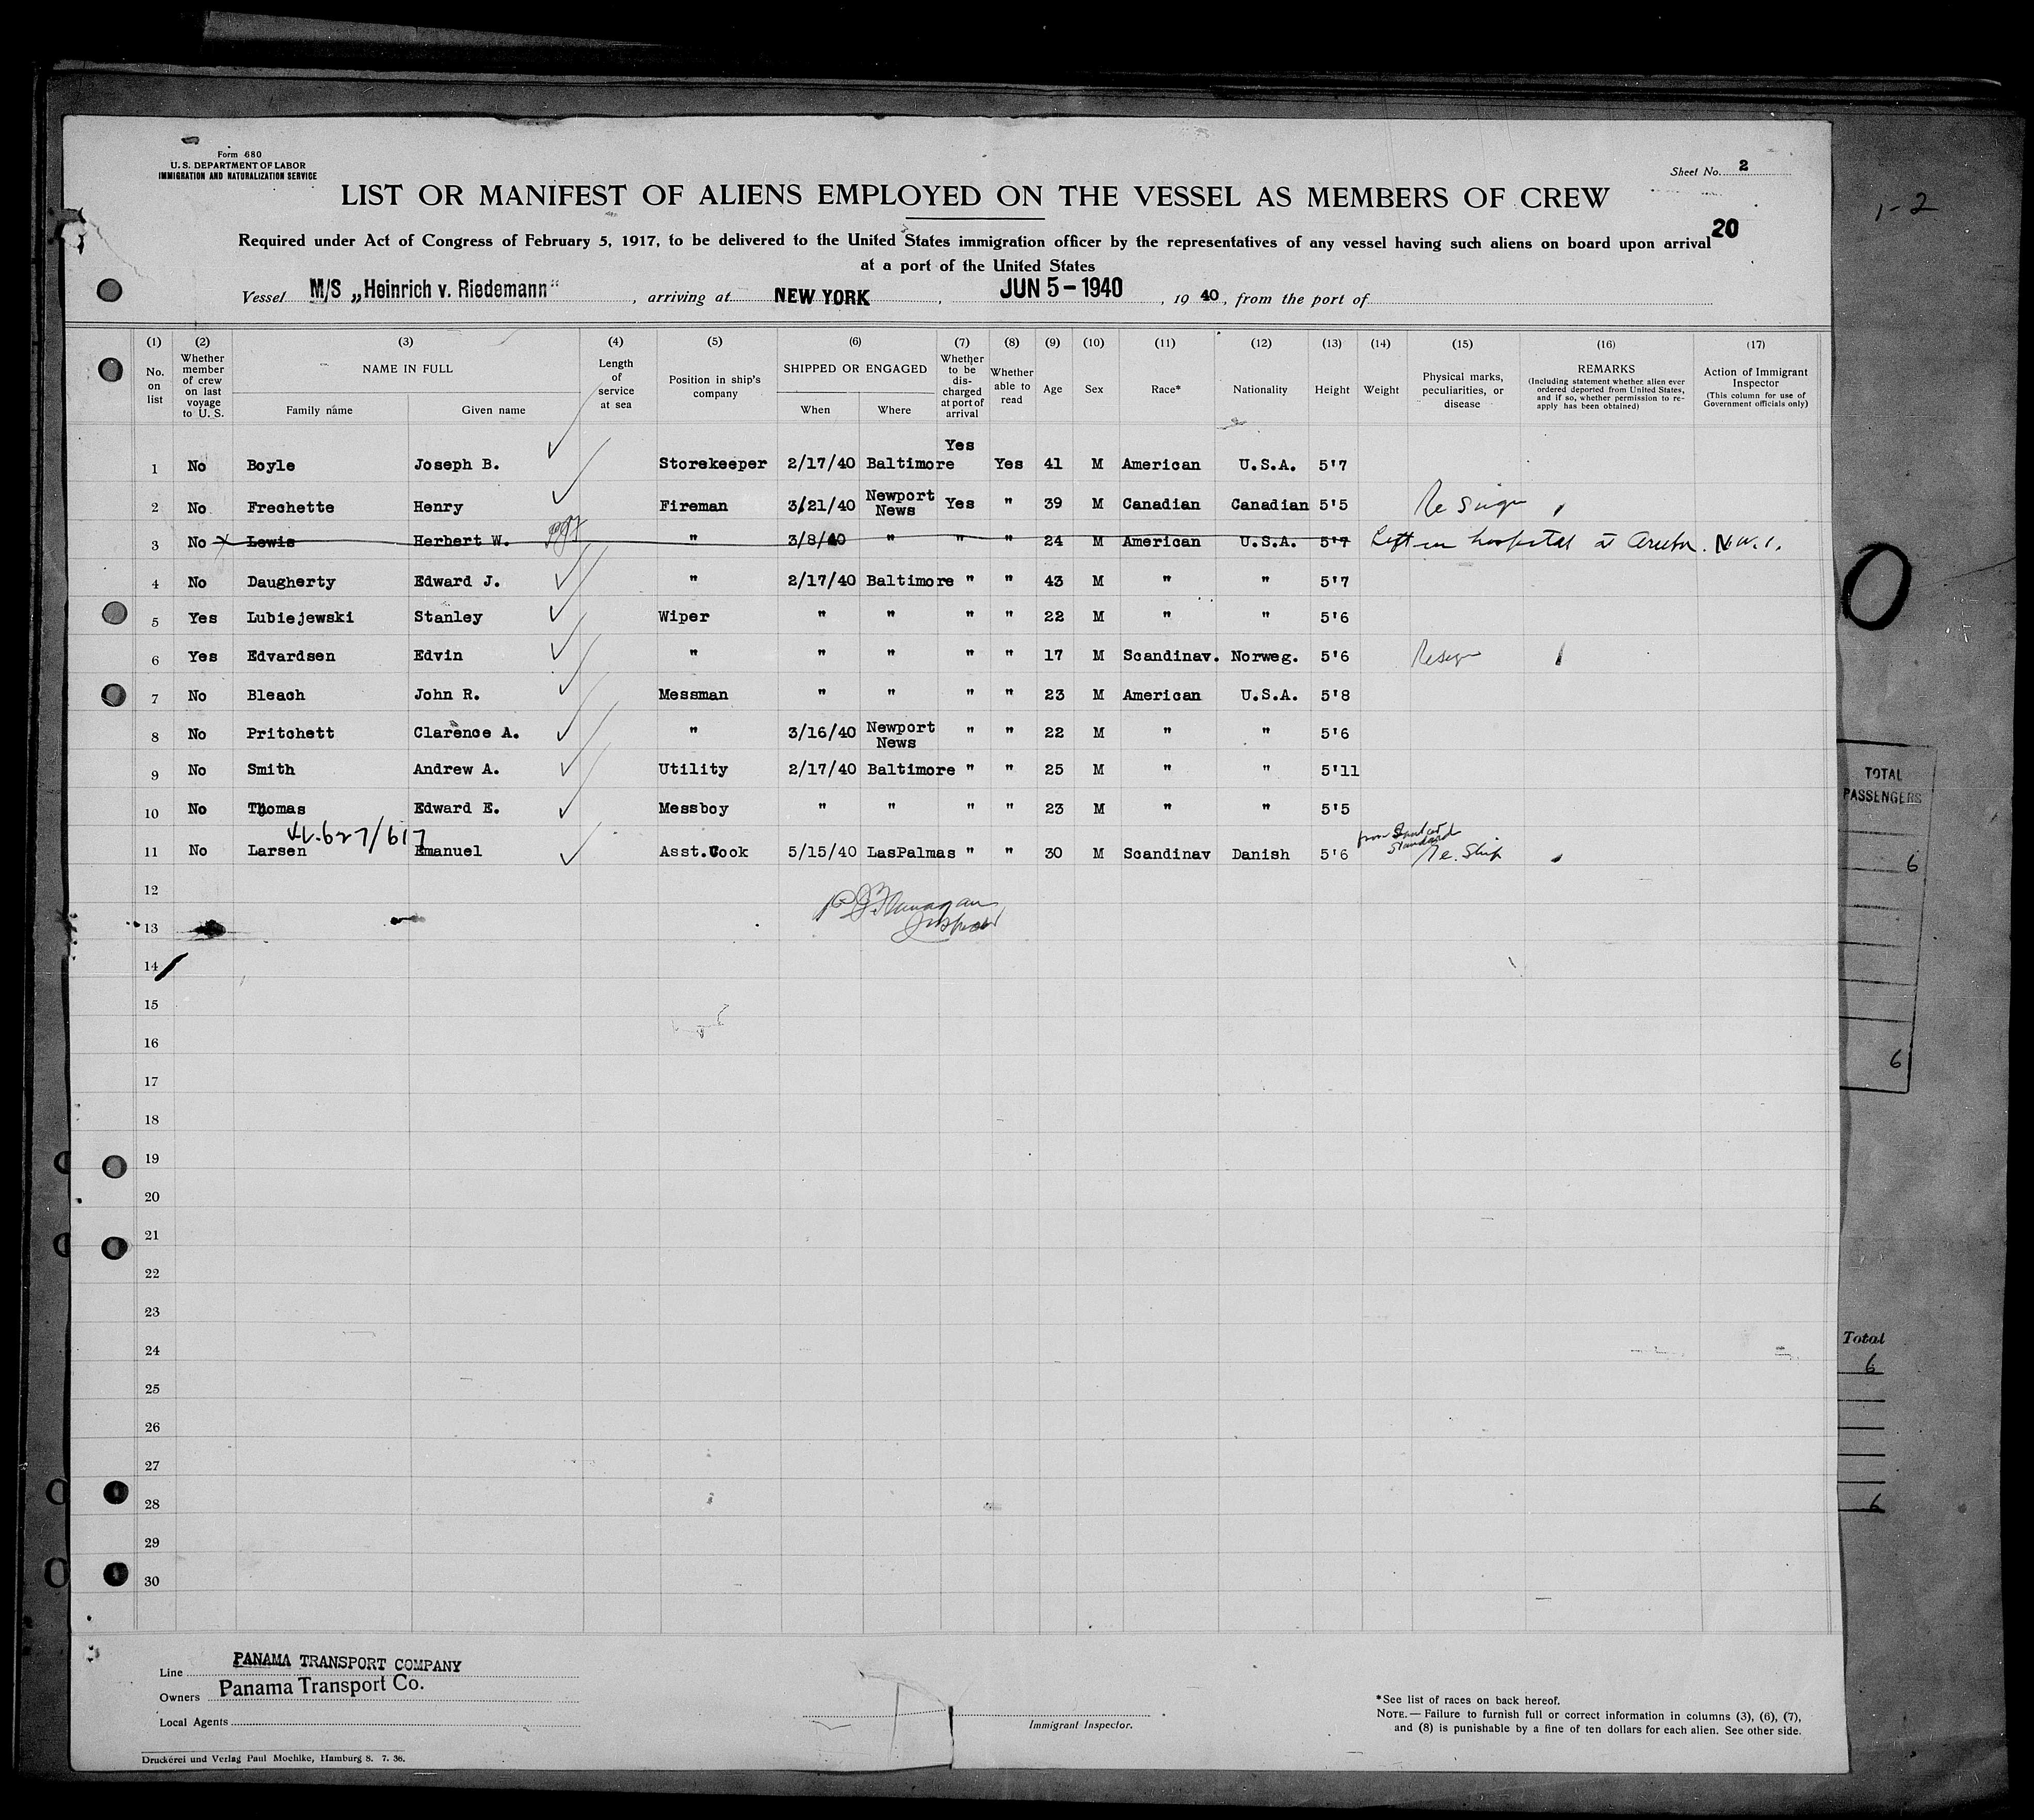 Form 680
U. S. DEPARTMENT OF LABOR
IMMIGRATION AND NATURALIZATION SERVICE
Sheet No. 2
1-2
LIST OR MANIFEST OF ALIENS EMPLOYED ON THE VESSEL AS MEMBERS OF CREW
20
Required under Act of Congress of February 5, 1917, to be delivered to the United States immigration officer by the representatives of any vessel having such aliens on board upon arrival
at a port of the United States
Vessel M/S „Heinrich v. Riedemann“, arriving at NEW YORK, JUN 5-1940, 19 40, from the port of
(1) (2) (3) (4) (5) (6) (7) (8) (9) (10) (11) (12) (13) (14) (15) (16) (17)
No. on list
Whether member of crew on last voyage to U. S.
NAME IN FULL
Family name
Given name
Length of service at sea
Position in ship's company
SHIPPED OR ENGAGED
When
Where
Whether to be discharged at port of arrival
Whether able to read
Age
Sex
Race*
Nationality
Height
Weight
Physical marks, peculiarities, or disease
REMARKS
(Including statement whether alien ever ordered deported from United States, and if so, whether permission to reapply has been obtained)
Action of Immigrant Inspector
(This column for use of Government officials only)
1 No Boyle Joseph B. Storekeeper 2/17/40 Baltimore Yes Yes 41 M American U.S.A. 5'7
2 No Frechette Henry Fireman 3/21/40 Newport News Yes " 39 M Canadian Canadian 5'5 Re Sign
3 No x Lewis Herbert W. " 3/8/40 " " " 24 M American U.S.A. 5'7 Left in hospital at Aruba. N.W.I.
4 No Daugherty Edward J. " 2/17/40 Baltimore " " 43 M " " 5'7
5 Yes Lubiejewski Stanley Wiper " " " " 22 M " " 5'6
6 Yes Edvardsen Edvin " " " " " 17 M Scandinav. Norweg. 5'6 Resign
7 No Bleach John R. Messman " " " " 23 M American U.S.A. 5'8
8 No Pritchett Clarence A. " 3/16/40 Newport News " " 22 M " " 5'6
9 No Smith Andrew A. Utility 2/17/40 Baltimore " " 25 M " " 5'11
10 No Thomas Edward E. Messboy " " " " 23 M " " 5'5
627/617
11 No Larsen Emanuel Asst.Cook 5/15/40 LasPalmas " " 30 M Scandinav Danish 5'6 from Standard Re. Ship
12
13
14
15
16
17
18
19
20
21
22
23
24
25
26
27
28
29
30
Flanagan
Inspector
0
TOTAL
PASSENGERS
6
6
Total
6
6
Line PANAMA TRANSPORT COMPANY
Owners Panama Transport Co.
Local Agents
Immigrant Inspector.
*See list of races on back hereof.
NOTE.— Failure to furnish full or correct information in columns (3), (6), (7),
and (8) is punishable by a fine of ten dollars for each alien. See other side.
Druckerei und Verlag Paul Moehlke, Hamburg 8. 7. 36.